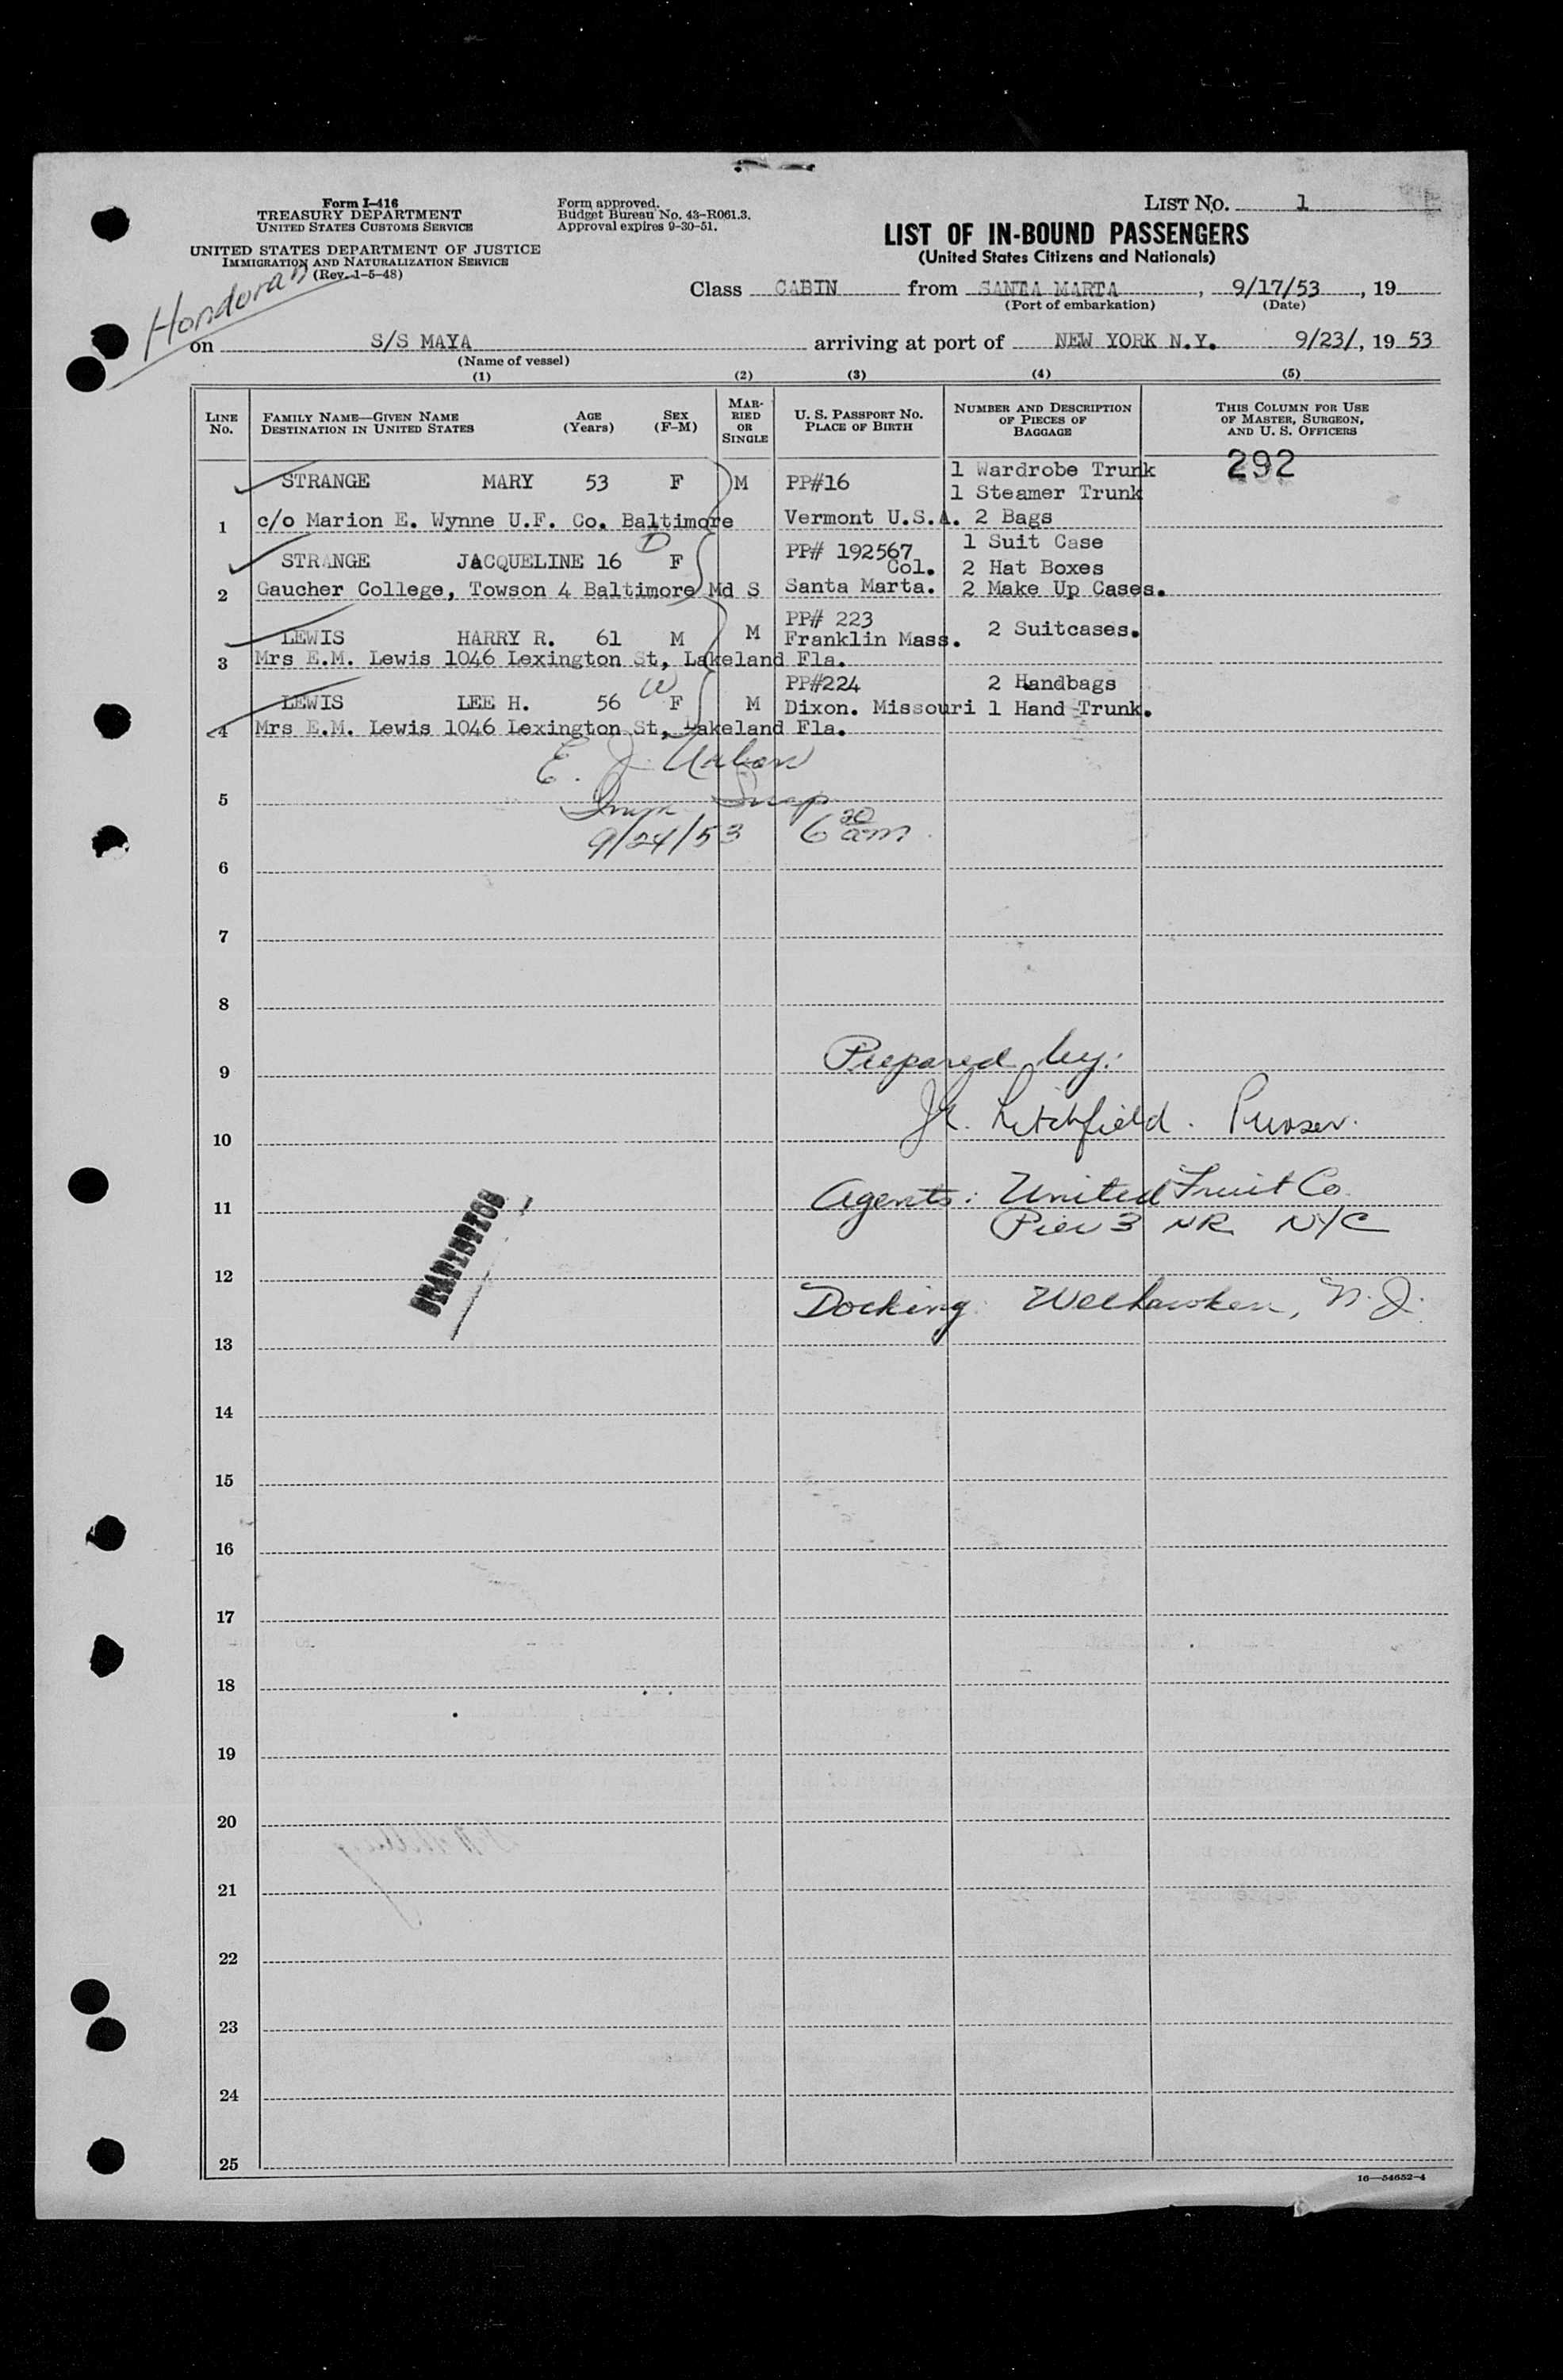 Form I-416
TREASURY DEPARTMENT
UNITED STATES CUSTOMS SERVICE
UNITED STATES DEPARTMENT OF JUSTICE
IMMIGRATION AND NATURALIZATION SERVICE
(Rev. 1-5-48)
Form approved.
Budget Bureau No. 43-R061.3.
Approval expires 9-30-51.
LIST NO. 1
LIST OF IN-BOUND PASSENGERS
(United States Citizens and Nationals)
Honduran
Class CABIN from SANTA MARTA, 9/17/53, 19
(Port of embarkation) (Date)
on S/S MAYA arriving at port of NEW YORK N.Y. 9/23/, 19 53
(Name of vessel)
(1) (2) (3) (4) (5)
LINE NO. FAMILY NAME—GIVEN NAME DESTINATION IN UNITED STATES AGE (Years) SEX (F-M) MARRIED OR SINGLE U. S. PASSPORT NO. PLACE OF BIRTH NUMBER AND DESCRIPTION OF PIECES OF BAGGAGE THIS COLUMN FOR USE OF MASTER, SURGEON, AND U. S. OFFICERS
1 Wardrobe Trunk 292
STRANGE MARY 53 F M PP#16 1 Steamer Trunk
1 c/o Marion E. Wynne U.F. Co. Baltimore Vermont U.S.A. 2 Bags
D 1 Suit Case
STRANGE JACQUELINE 16 F PP# 192567 Col. 2 Hat Boxes
2 Gaucher College, Towson 4 Baltimore Md S Santa Marta. 2 Make Up Cases.
PP# 223
LEWIS HARRY R. 61 M M Franklin Mass. 2 Suitcases.
3 Mrs E.M. Lewis 1046 Lexington St, Lakeland Fla.
W PP#224 2 Handbags
LEWIS LEE H. 56 F M Dixon. Missouri 1 Hand Trunk.
4 Mrs E.M. Lewis 1046 Lexington St, Lakeland Fla.
E. J.
5 Imm Insp
9/24/53 6 20 am
6
7
8
9 Prepared by:
10 Litchfield. Purser.
11 Agents: United Fruit Co.
Pier 3 NR NYC
12
Docking: Weehawken, N.J.
13
14
15
16
17
18
19
20
21
22
23
24
25
16—54652-4